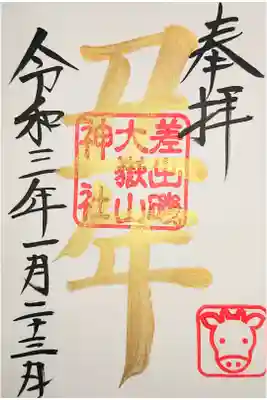 奉拝
丑年
差出磯
大嶽山
神社
令和三年一月二十三日